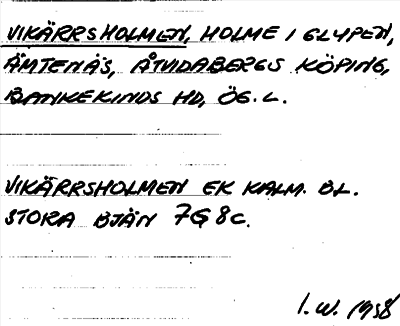 VIKÄRRSHOLMEN, HOLME I GLYPEN,
ÄMTENÄS, ÅTVIDABERGS KÖPING,
BANKEKINDS HD, ÖG. L.
VIKÄRRSHOLMEN EK KALM. BL.
STORA BJÄN 7G 8c.
I. W. 1958